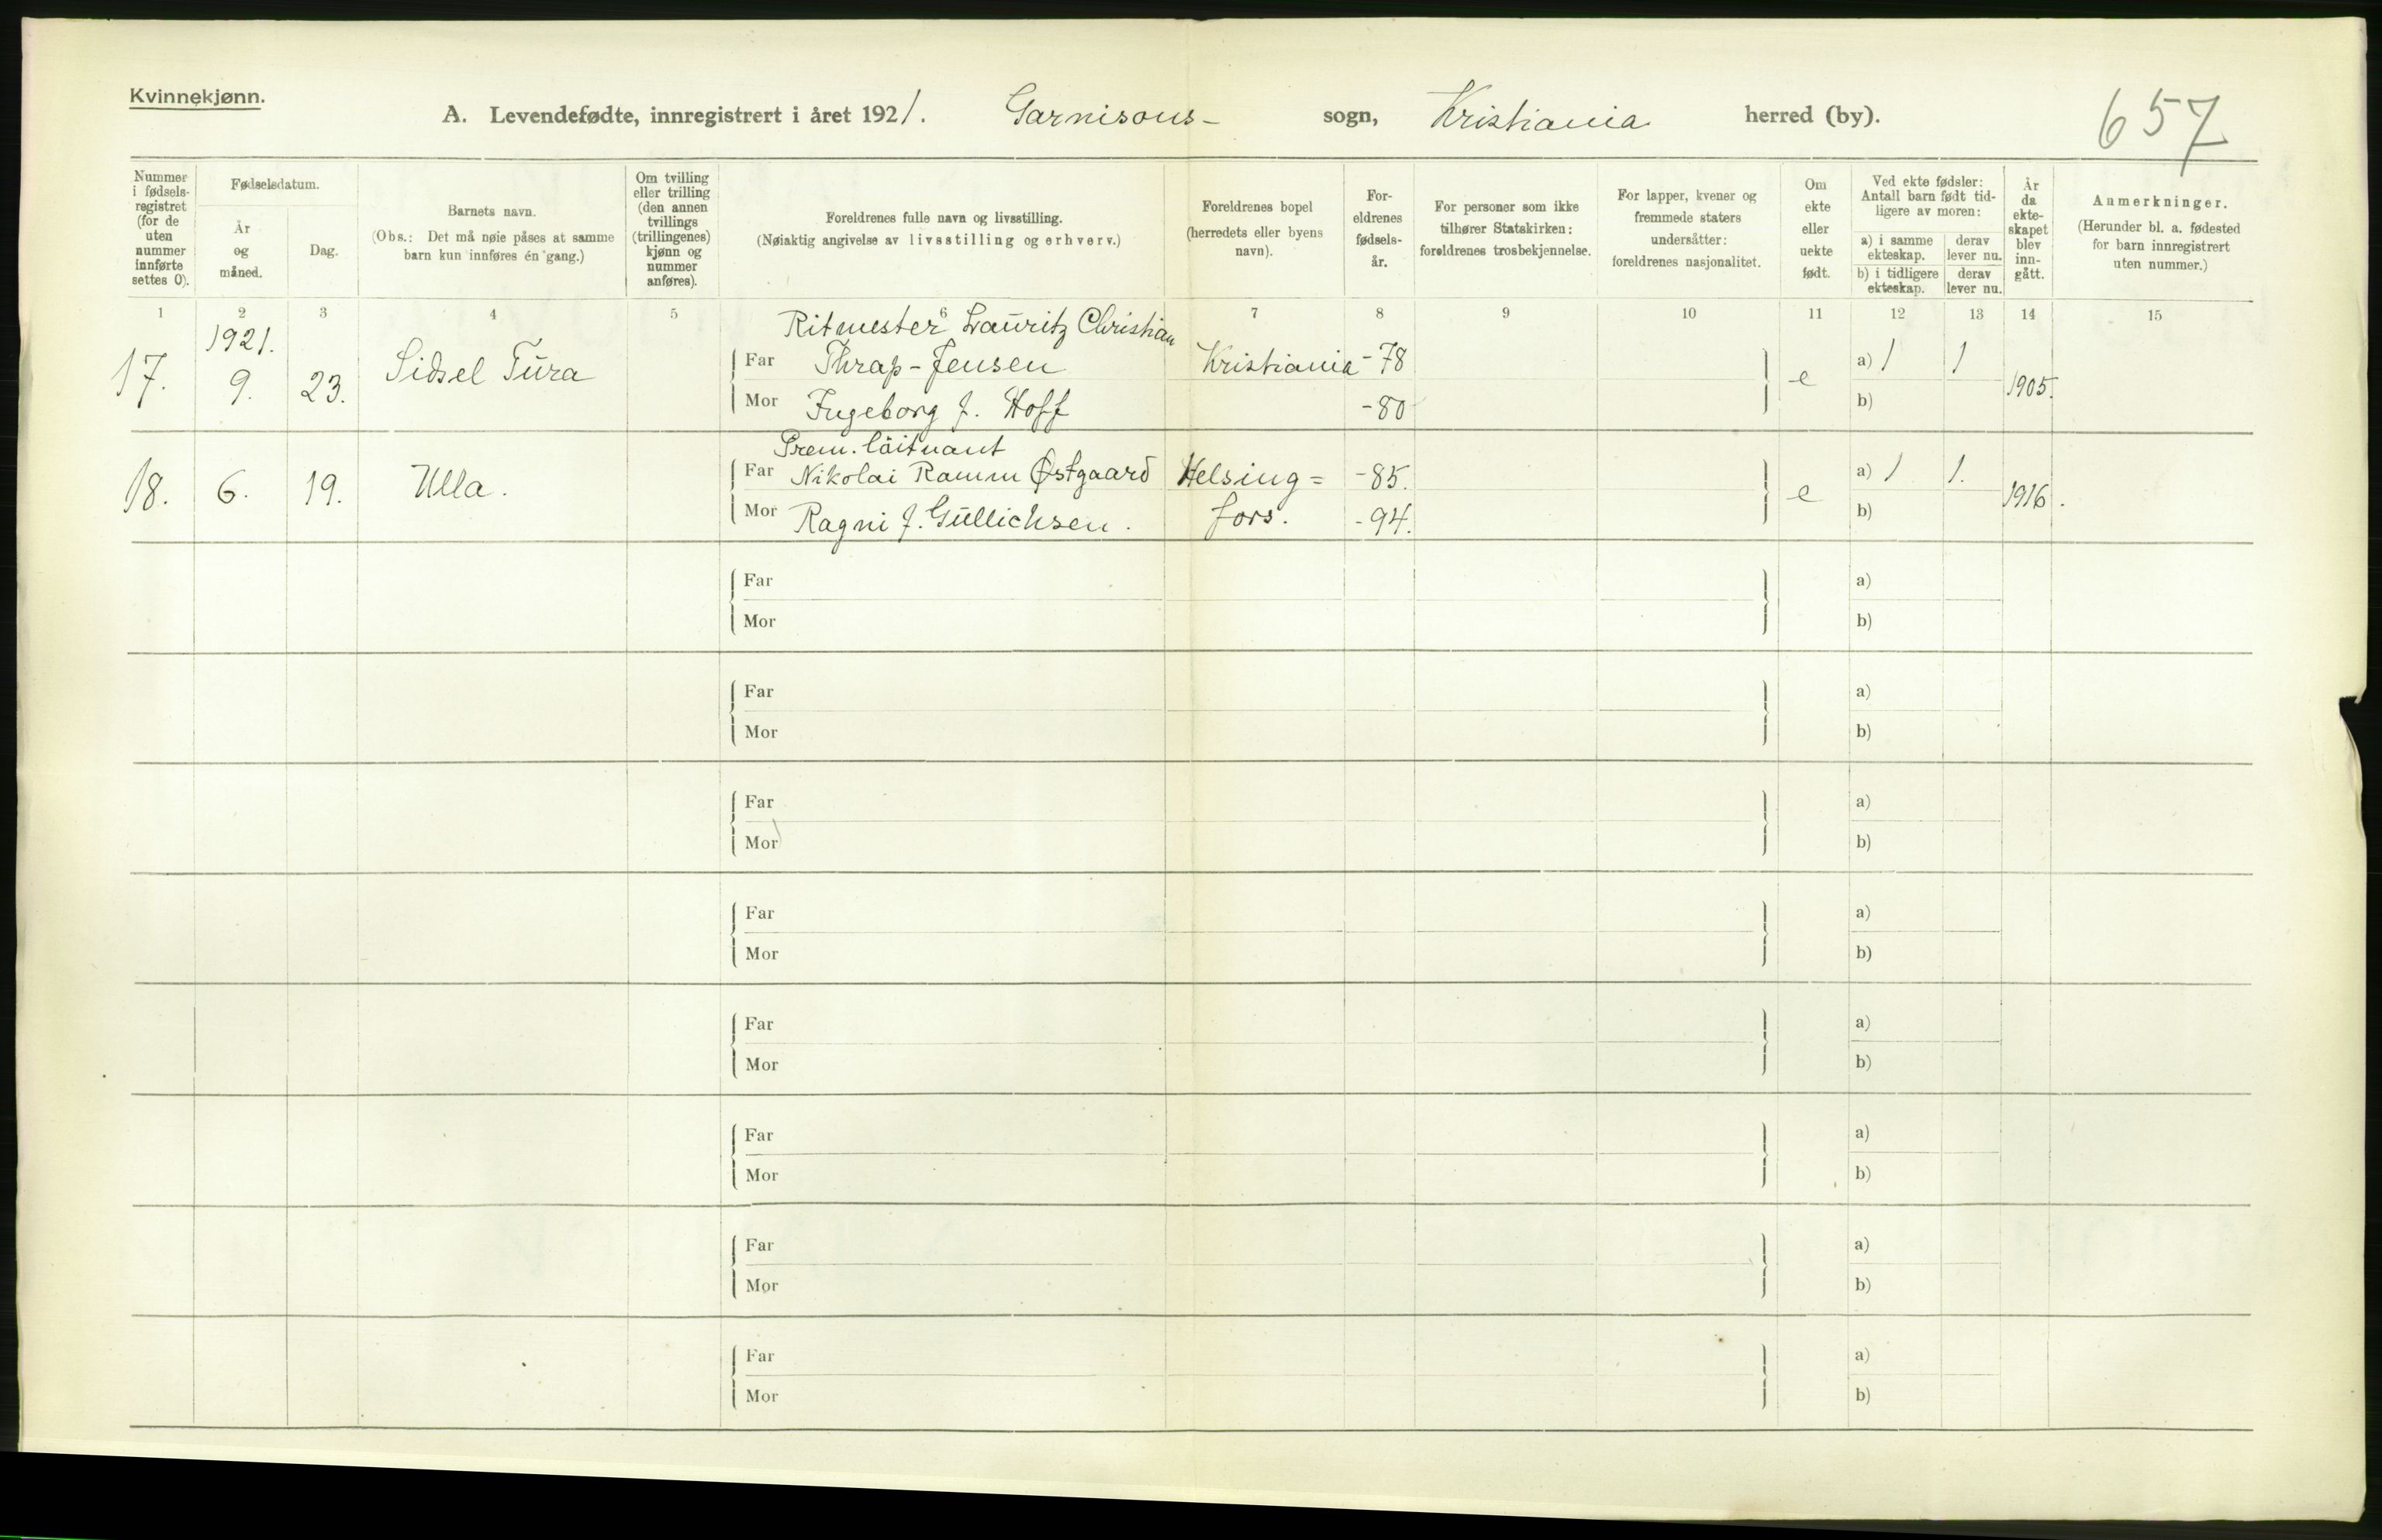 Kvinnekjønn.
A. Levendefødte, innregistrert i året 1921. Garnisons- sogn, Kristiania herred (by).
657
Nummer i fødsels-registret (for de uten nummer innførte settes 0).
Fødselsdatum.
År og måned.
Dag.
Barnets navn.
(Obs.: Det må nøie påses at samme barn kun innføres én gang.)
Om tvilling eller trilling (den annen tvillings (trillingenes) kjønn og nummer anføres).
Foreldrenes fulle navn og livsstilling.
(Nøiaktig angivelse av livsstilling og erhverv.)
Foreldrenes bopel (herredets eller byens navn).
For-eldrenes fødsels-år.
For personer som ikke tilhører Statskirken: foreldrenes trosbekjennelse.
For lapper, kvener og fremmede staters undersåtter: foreldrenes nasjonalitet.
Om ekte eller uekte født.
Ved ekte fødsler: Antall barn født tid-ligere av moren:
a) i samme ekteskap.
derav lever nu.
b) i tidligere ekteskap.
derav lever nu.
År da ekte-skapet blev inn-gått.
Anmerkninger.
(Herunder bl. a. fødested for barn innregistrert uten nummer.)
1 2 3 4 5 6 7 8 9 10 11 12 13 14 15
1921.
Ritmester Lauritz Christian
17. 9. 23. Sidsel Tura Far Thrap-Jensen Kristiania -78 e a) 1 1 1905.
Mor Ingeborg f. Hoff -80 b)
Prem. løitnant
18. 6. 19. Ulla. Far Nikolai Ramm Østgaard Helsing= -85. e a) 1 1. 1916.
Mor Ragni f. Gullichsen. fors. -94. b)
Far a)
Mor b)
Far a)
Mor b)
Far a)
Mor b)
Far a)
Mor b)
Far a)
Mor b)
Far a)
Mor b)
Far a)
Mor b)
Far a)
Mor b)